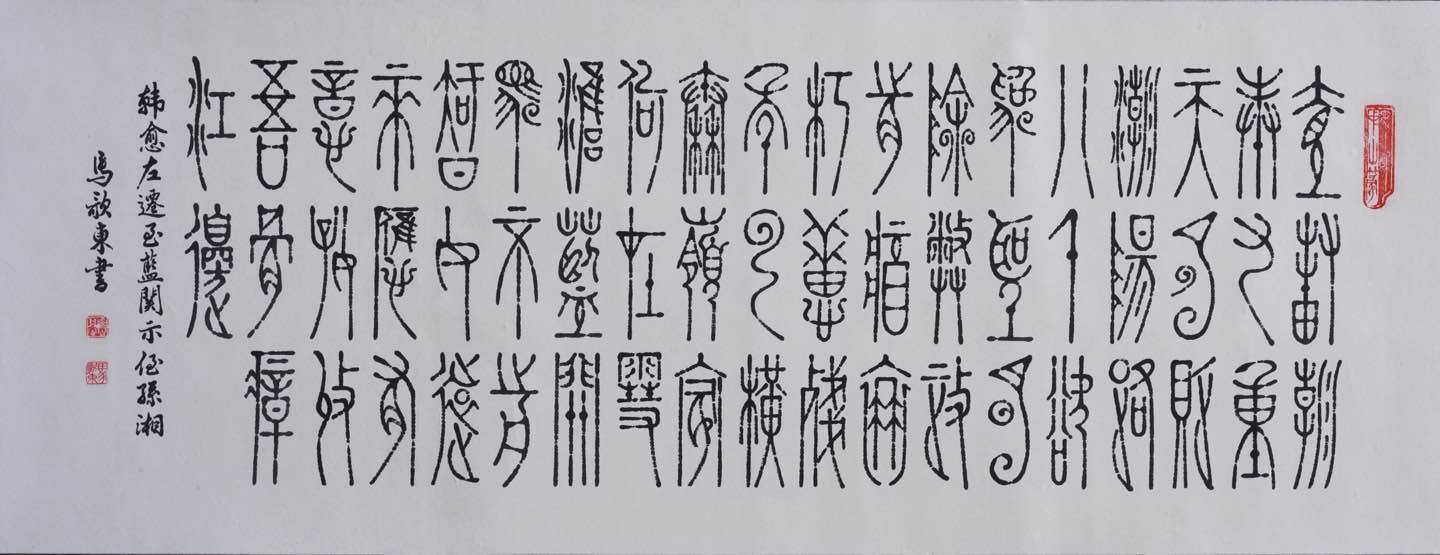 壹封朝
奏九重
天夕貶
潮陽路
八千欲
為聖明
除弊事
肯將衰
朽惜殘
年雲橫
秦嶺家
何在雪
擁藍關
馬不前
知汝遠
來應有
意好收
吾骨瘴
江邊
韩愈左遷至藍関示侄孫湘
馬歌東書